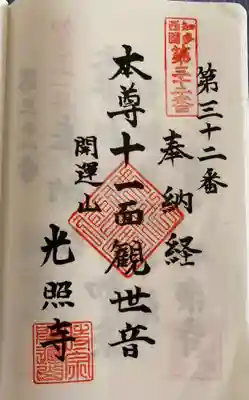 知多西国第三十二番
第三十二番
奉納経
本尊十一面観世音
開運山
光照寺